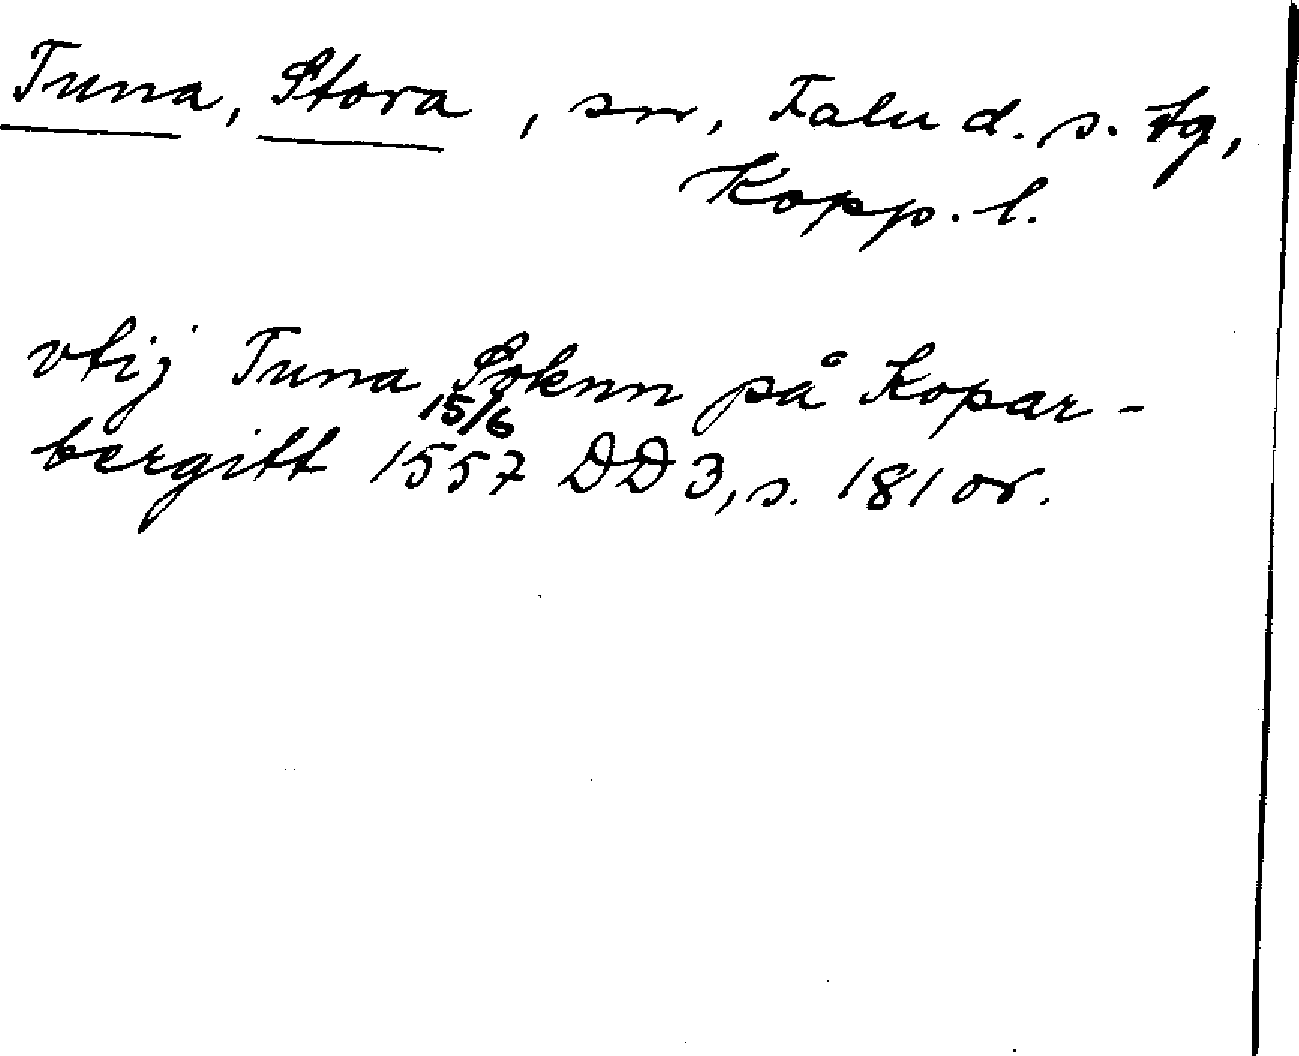 Tuna, Stora, sn, Falu d. s. tg,
Kopp. l.
vtij Tuna Soknn på Kopar-
bergitt 15/6 1557 DD 3, s. 181 or.